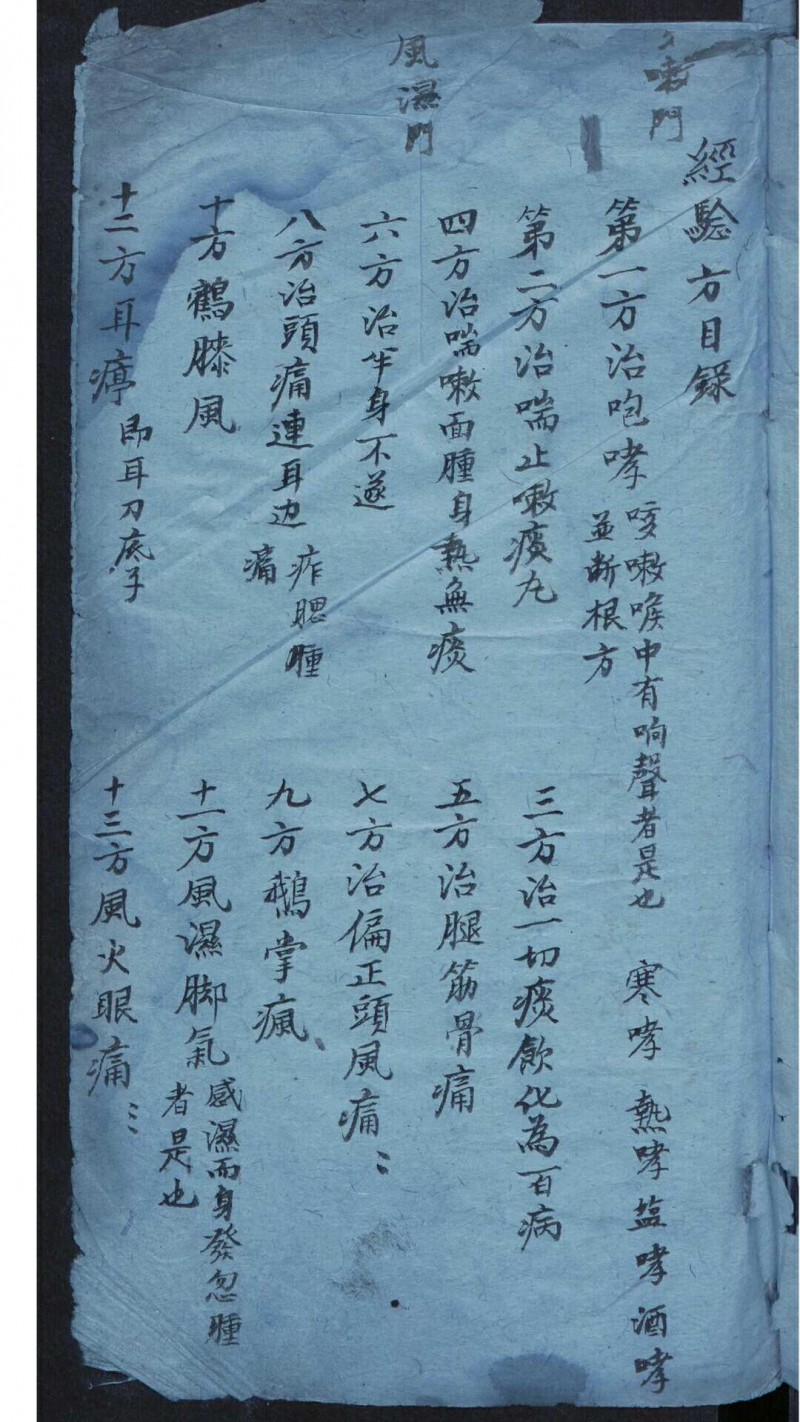 嗽門
經驗方目錄
第一方治咆哮
咳嗽喉中有响聲者是也 寒哮 熱哮 盐哮 酒哮
並斷根方
第二方治喘止嗽痰丸
三方治一切痰飲化為百病
風濕門
四方治喘嗽面腫身熱無痰
五方治腿筋骨痛
六方治半身不遂
七方治偏正頭風痛：
八方治頭痛連耳边
痄腮腫
痛
九方鵝掌瘋
十方鶴膝風
十一方風濕脚氣
感濕而身發忽腫
者是也
十二方耳
即耳刀底子
十三方風火眼痛：